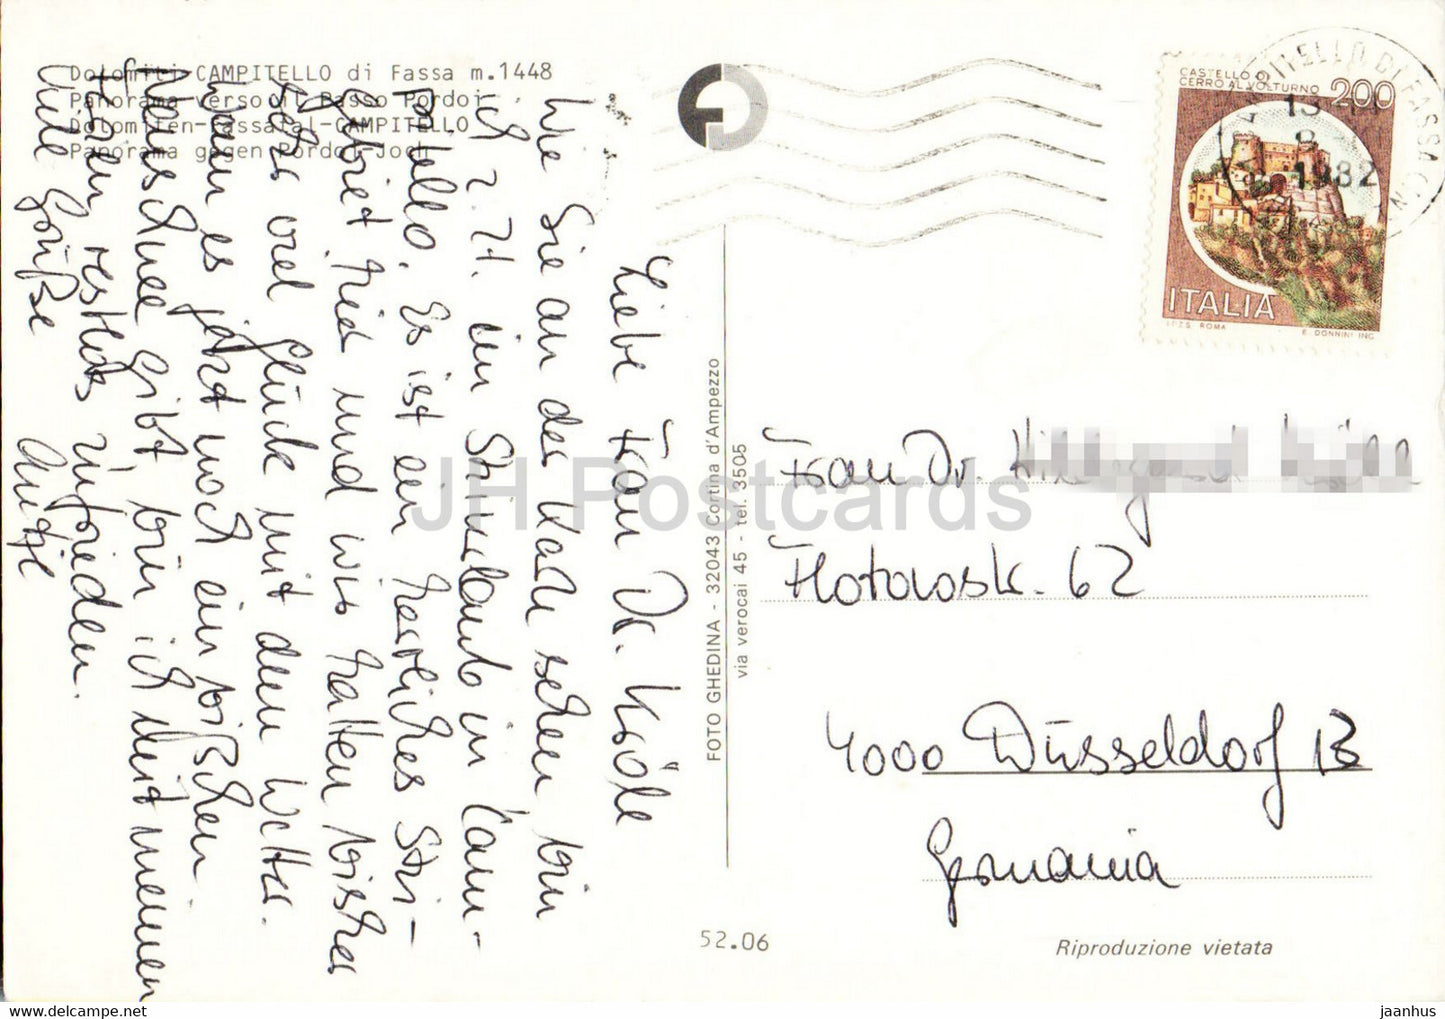 Dolomiti-CAMPITELLO di Fassa m.1448
Panorama verso il Passo Pordoi
Dolomiten-Fassatal-CAMPITELLO
Panorama gegen Pordoi Joch
Liebe Frau Dr. Kröll
Wie Sie an der Karte sehen bin
ich z. Zt. im Skiurlaub in Cam-
pitello. Es ist ein herrliches Ski-
gebiet hier und wir hatten bisher
sehr viel Glück mit dem Wetter.
Wenn es jetzt noch ein bißchen
Neuschnee gibt bin ich mit meinen
Ferien restlos zufrieden.
Viele Grüße
Antje
FOTO GHEDINA - 32043 Cortina d'Ampezzo
via verocai 45 - tel. 3505
CASTELLO DI
CERRO AL VOLTURNO 200
ITALIA
I.P.Z.S. ROMA E. DONNINI INC.
CAMPITELLO DI FASSA (TN)
13
8
1982
Frau Dr.
Flotowstr. 62
4000 Düsseldorf 13
Germania
52.06
Riproduzione vietata
JH Postcards
https://jhpostcards.com jaanhus